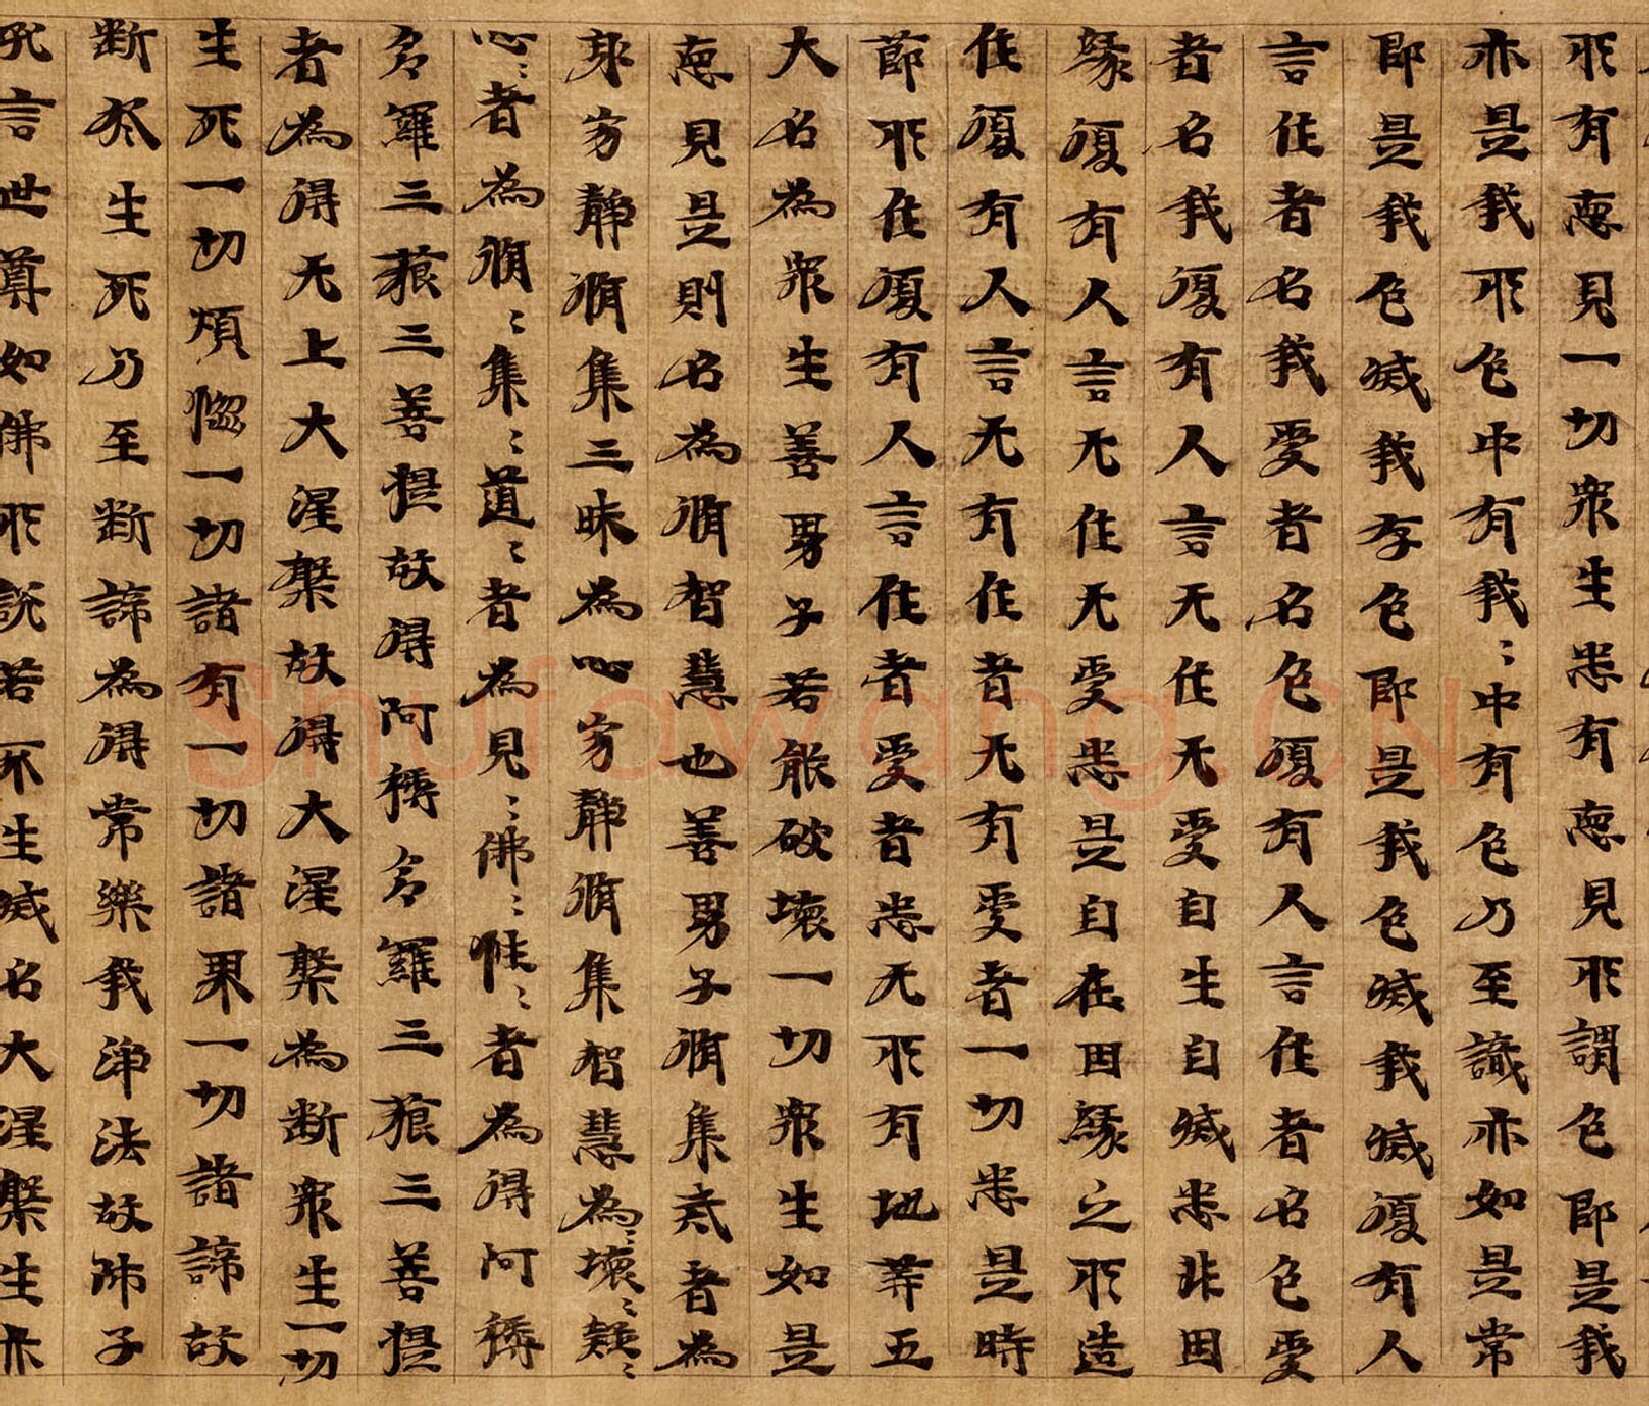 所有惡見一切眾生悉有惡見所謂色即是我
亦是我所色中有我〻中有色乃至識亦如是常
即是我色滅我存色即是我色滅我滅復有人
言作者名我受者名色復有人言作者名色受
者名我復有人言无作无受自生自滅悉非因
緣復有人言无作无受悉是自在因緣之所造
作復有人言无有作者无有受者一切悉是時
節所作復有人言作者受者悉无所有地等五
大名為眾生善男子若能破壞一切眾生如是
惡見是則名為脩智慧也善男子脩集戒者為
身寂靜脩集三昧為心寂靜脩集智慧為〻壞〻疑〻
心〻者為脩〻集〻道〻者為見〻佛〻性〻者為得阿耨
多羅三藐三菩提故得阿耨多羅三藐三菩提
者為得无上大涅槃故得大涅槃為斷眾生一切
生死一切煩惱一切諸有一切諸界一切諸諦故
斷於生死乃至斷諦為得常樂我淨法故師子
吼言世尊如佛所說若不生滅名大涅槃生亦
Shufawang.CN